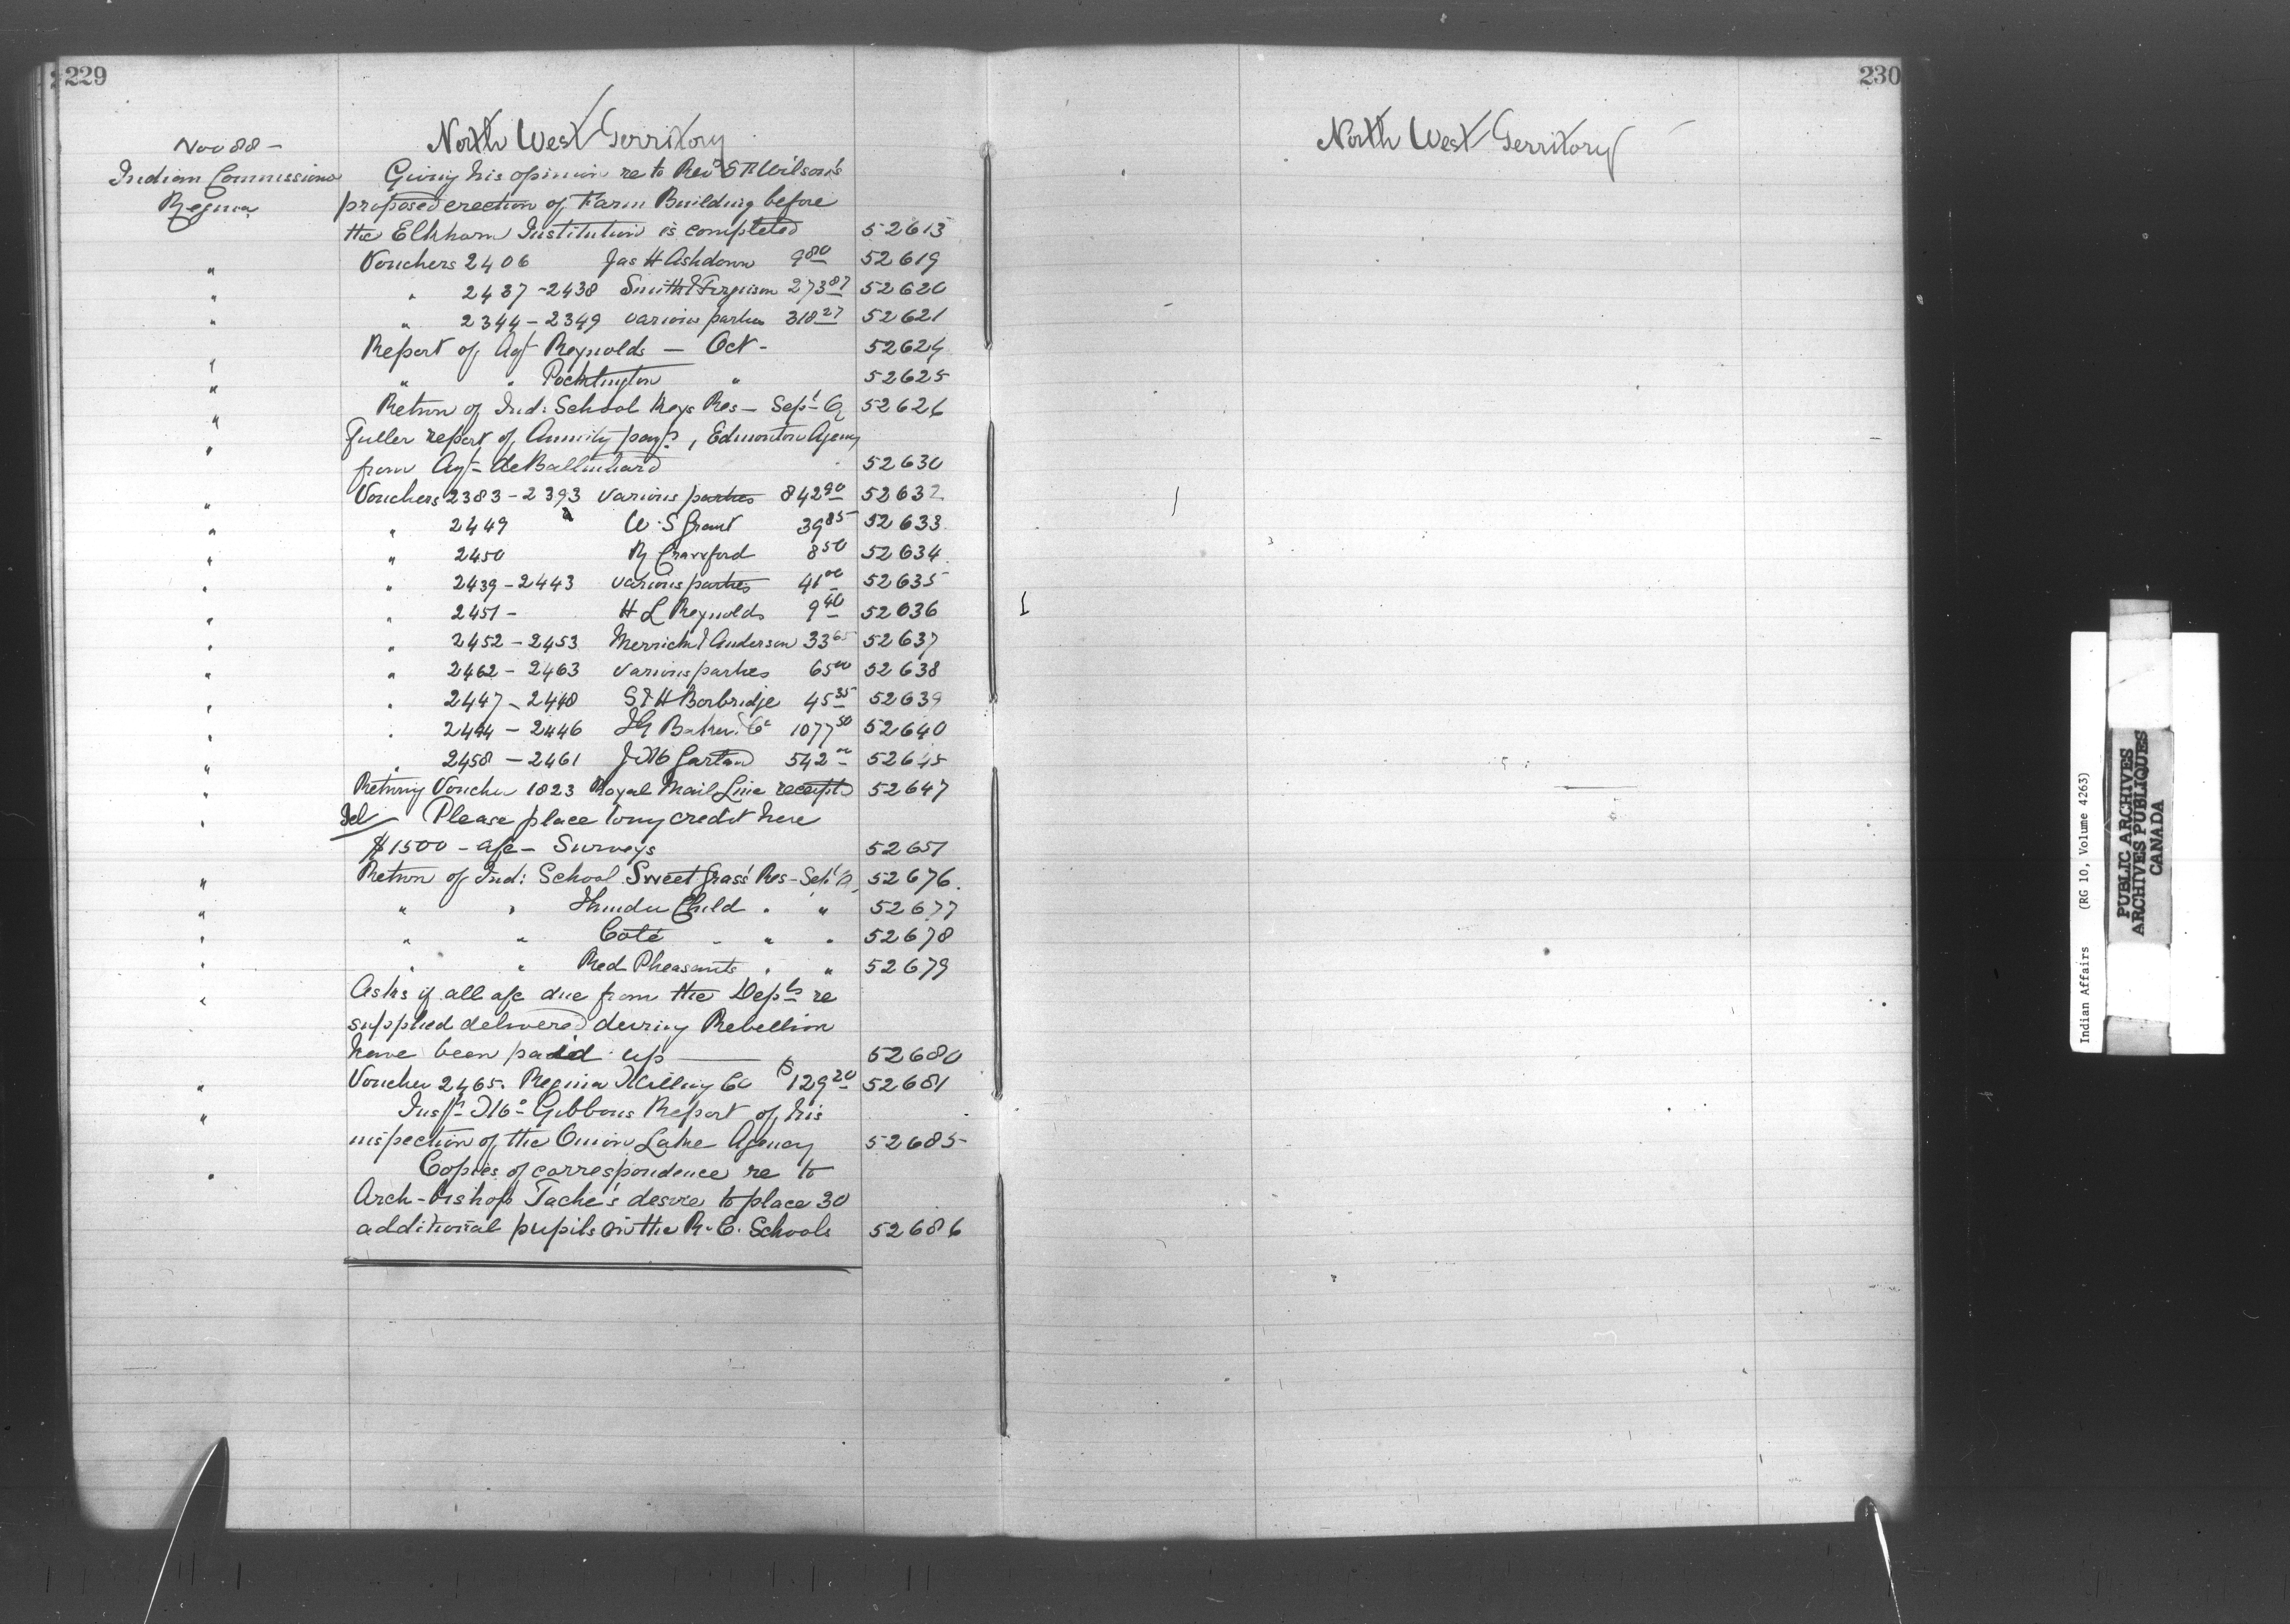 229
North West Territory
Nov 88 -
Indian Commissioner Giving his opinion re to Revd E F Wilson's
Regina proposed erection of Farm Building before
the Elkhorn Institution is completed 52613
" Vouchers 2406 Jas H Ashdown 9 80 52619
" " 2437-2438 Smith & Ferguson 273 87 52620
" " 2344-2349 various parties 318 27 52621
" Report of Agt Reynolds — Oct - 52624
" " " Pocklington " 52625
" Return of Ind: School Keys Res - Sept Q 52626
" Fuller report of Annuity payts, Edmonton Agency
from Agt deBallinhard 52630
" Vouchers 2383-2393 various parties 842 90 52632
" " 2449 W. S Grant 39 85 52633
" " 2450 R Crawford 8 50 52634
" " 2439-2443 various parties 41 00 52635
" " 2451- H L Reynolds 9 40 52636
" " 2452-2453 Merrick & Anderson 33 65 52637
" " 2462-2463 various parties 65 00 52638
" " 2447-2448 S & H Borbridge 45 35 52639
" " 2444-2446 I G Baker & Co 1077 50 52640
" " 2458-2461 52645
" Returning Voucher 1823 Royal Mail Line receipted 52647
" Tel Please place to my credit here
$1500 - a/c - Surveys 52651
" Return of Ind: School Sweet Grass' Res - Sept Q 52676
" " " Thunder Child " " 52677
" " " Coté " " " 52678
" " " Red Pheasants " " 52679
" Asks if all a/c due from the Depts re
supplied delivered during Rebellion
have been paid up — 52680
" Voucher 2465. Regina Milling Co $129 20 52681
" McGibbons Report of his
inspection of the Onion Lake Agency 52685
" Copies of correspondence re to
Arch-bishop Tache's desire to place 30
additional pupils in the R.C. Schools 52686
230
North West Territory
Indian Affairs (RG 10, Volume 4263)
PUBLIC ARCHIVES
ARCHIVES PUBLIQUES
CANADA